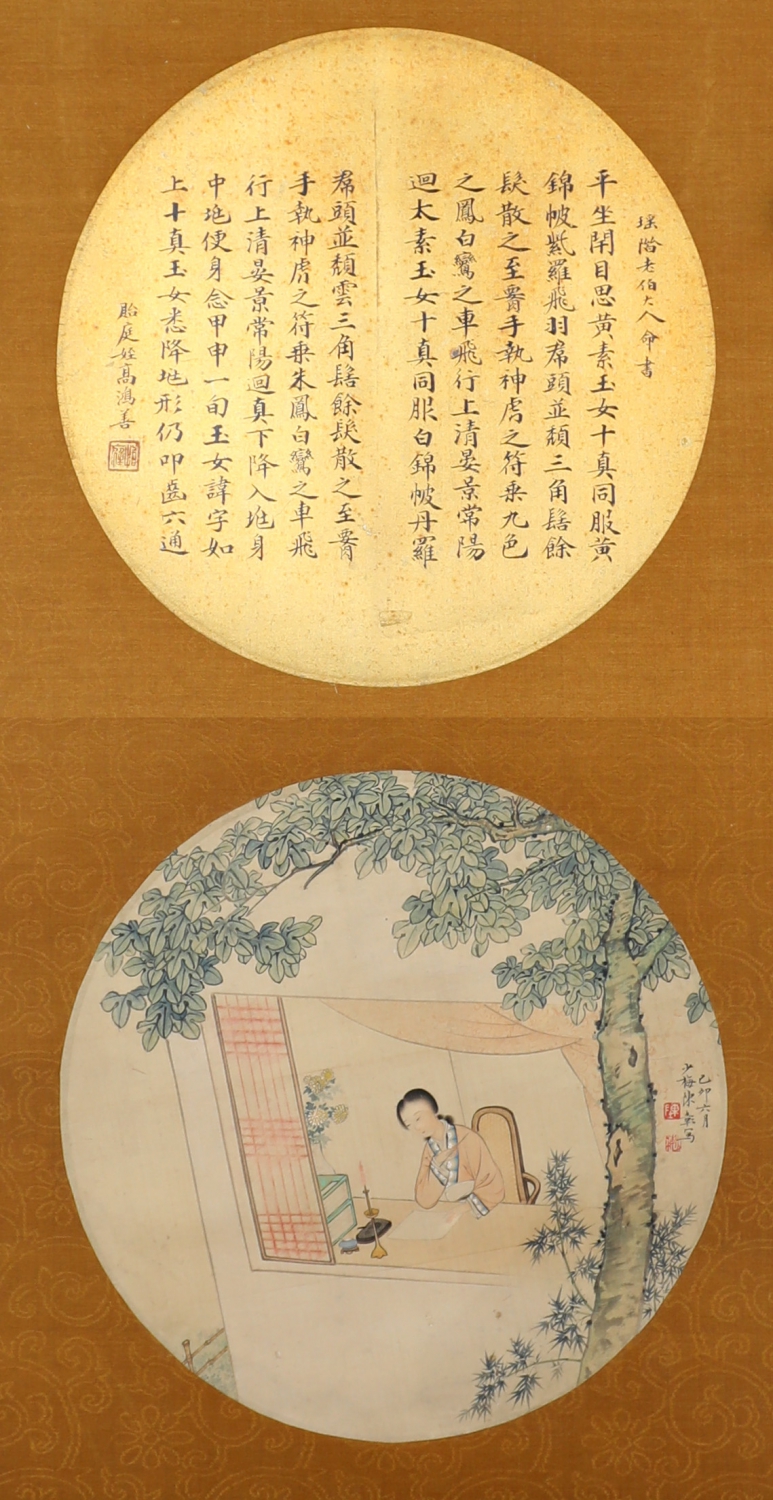 瑤階老伯大人命書
平坐閉目思黃素玉女十真同服黃
錦帔紫羅飛羽帬頭並頹三角髻餘
髮散之至署手執神虎之符乗九色
之鳳白鸞之車飛行上清晏景常陽
迴太素玉女十真同服白錦帔丹羅
帬頭並頹雲三角髻餘髮散之至署
手執神虎之符乗朱鳳白鸞之車飛
行上清晏景常陽迴真下降入兆身
中兆便身念甲申一旬玉女諱字如
上十真玉女悉降兆形仍叩齒六通
貽庭姪高鴻善
己卯六月
少梅陳雲彰寫